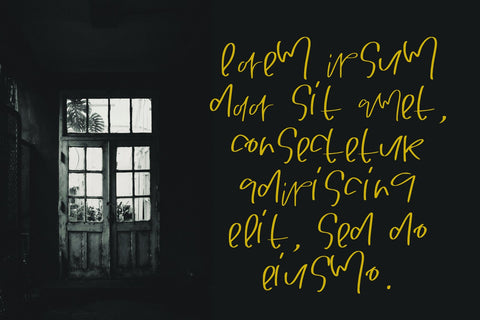 lorem ipsum
dolor sit amet,
consectetur
adipiscing
elit, sed do
eiusmo.